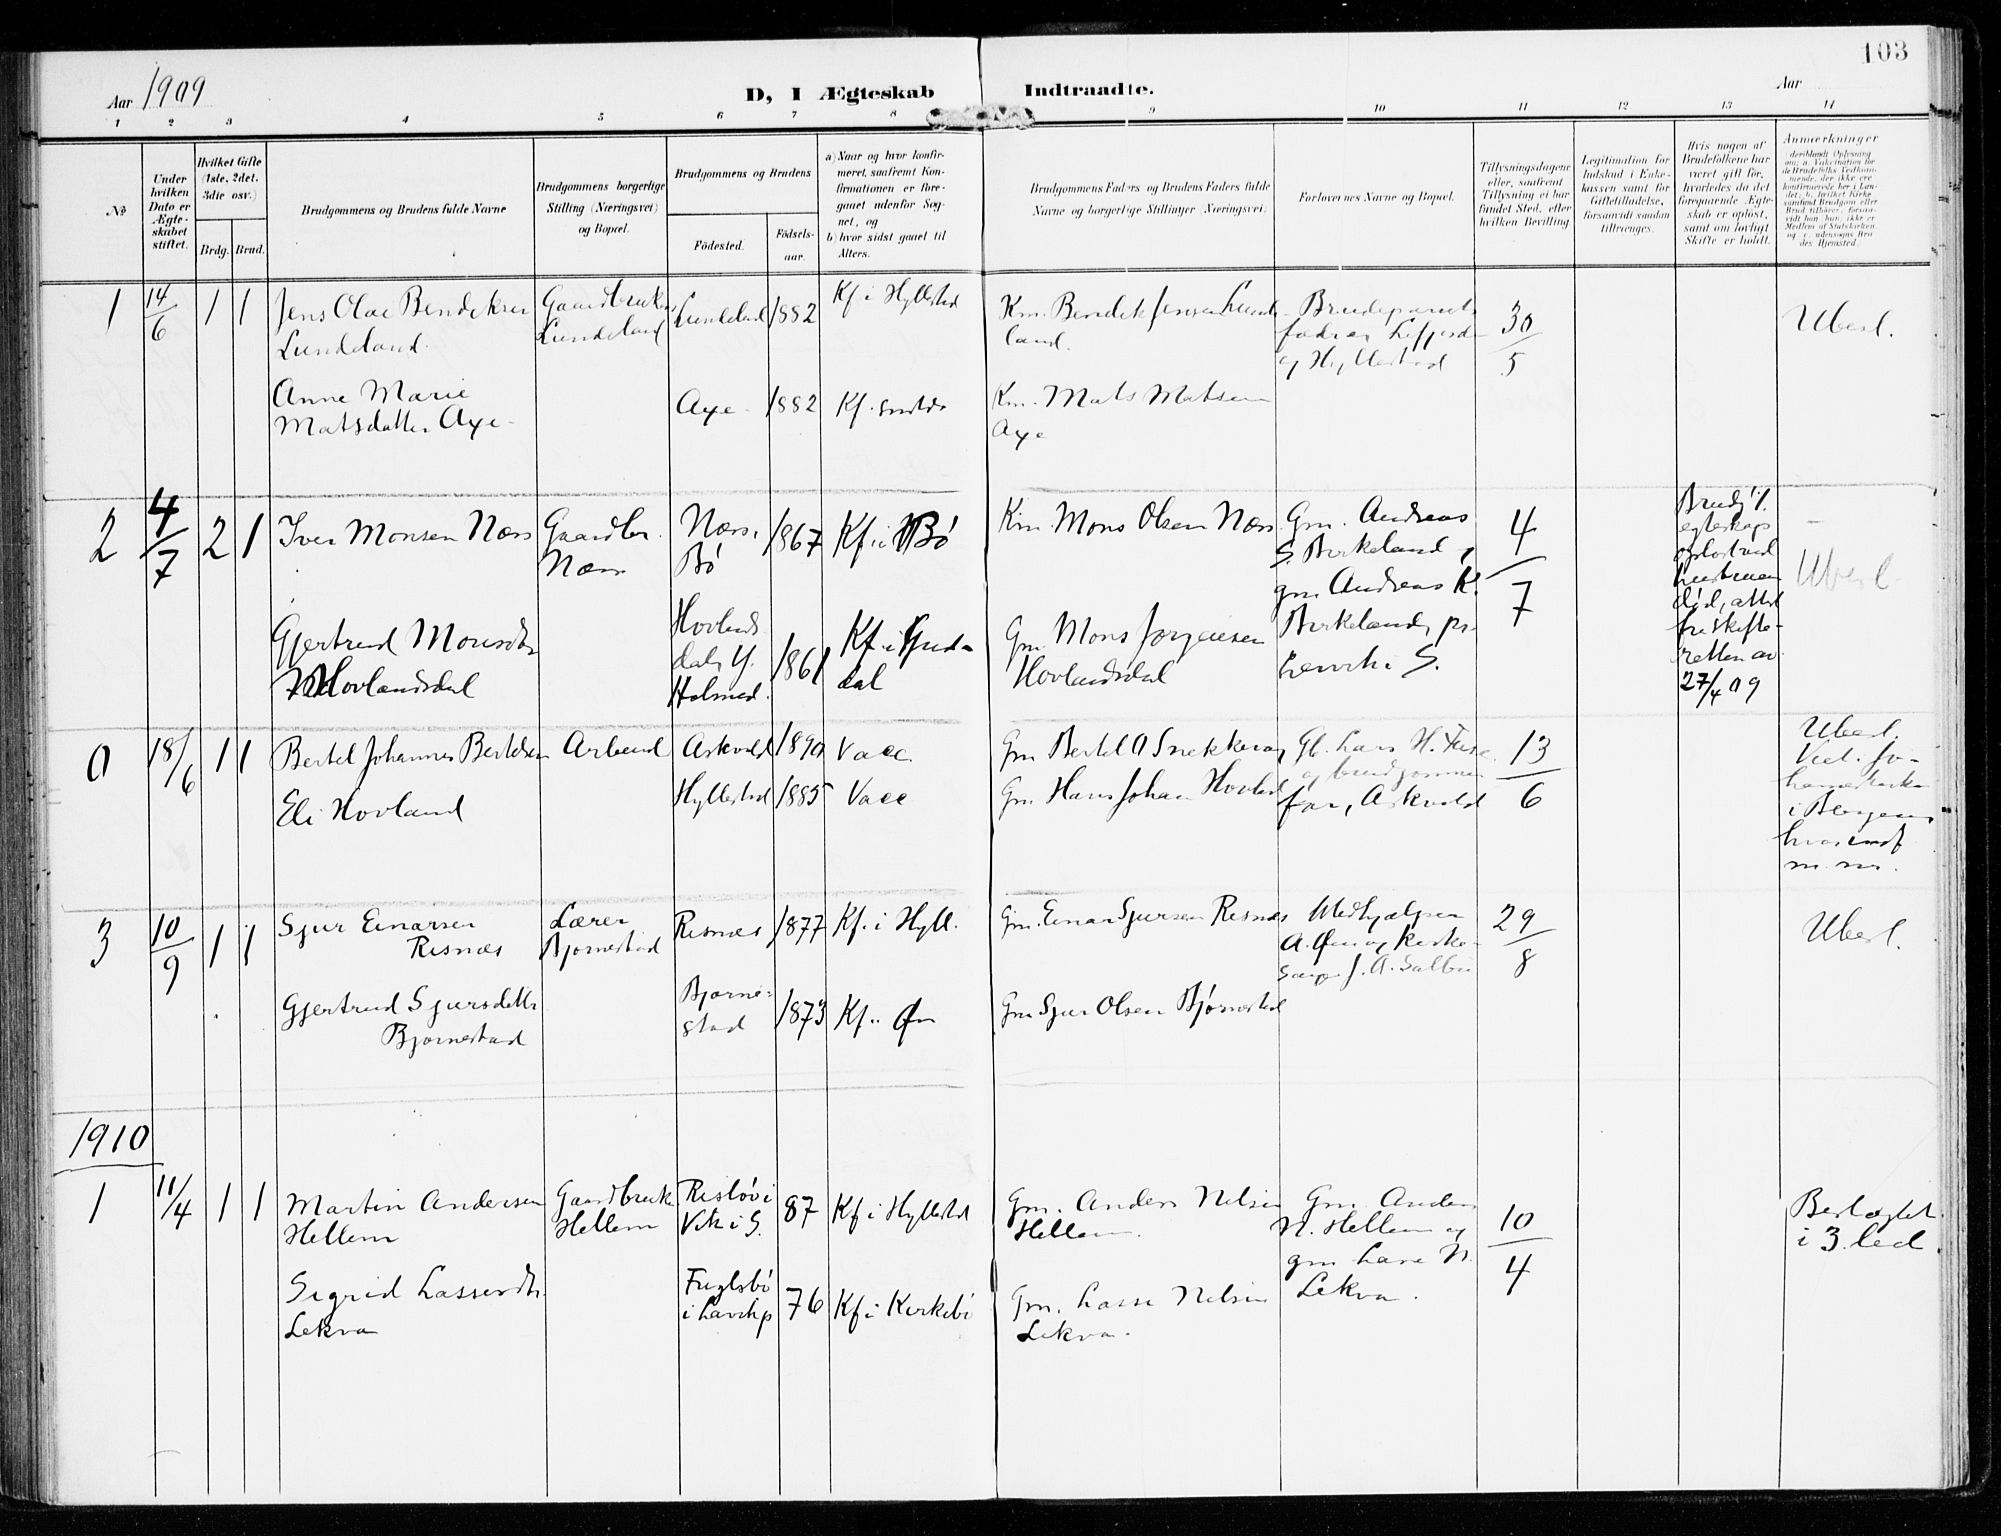 103
Aar 1909
D, I Ægteskab Indtraadte.
Aar
1 2 3 4 5 6 7 8 9 10 11 12 13 14
No
Under hvilken Dato er Ægteskabet stiftet.
Hvilket Gifte (1ste, 2det, 3die osv.)
Brdg. Brud.
Brudgommens og Brudens fulde Navne
Brudgommens borgerlige Stilling (Næringsvei) og Bopæl.
Brudgommens og Brudens
Fødested.
Fødselsaar.
a) Naar og hvor konfirmeret, saafremt Konfirmationen er foregaaet udenfor Sognet, og
b) hvor sidst gaaet til Alters.
Brudgommens Faders og Brudens Faders fulde Navne og borgerlige Stillinger (Næringsvei)
Forlovernes Navne og Bopæl.
Tillysningsdagene eller, saafremt Tillysning ei har fundet Sted, efter hvilken Bevilling
Legitimation for Indskud i Enkekassen samt for Giftetilladelse, forsaavidt saadan tiltrænges.
Hvis nogen af Brudefolkene har været gift før, hvorledes da det foregaaende Ægteskab er opløst, samt om lovligt Skifte er holdt.
Anmærkninger
1 14/6 1 1
Jens Olai Bendiksen
Lundeland.
Gaardbruker
Lundeland
Lundeland 1882
Kf i Hyllestad
Km. Bendik Jensen Lunde
land.
og Hyllestad
30/5
Ubesl.
Anne Marie
Matsdatter Aye.
Aye. 1882
Kf.
Km. Mats Matsen
Aye
2 4/7 2 1
Iver Monsen Næss
Gaardbr.
Næss
Næss,
Bø
1867
Kf. i Bø
Km. Mons Olsen Næss
Gm. Andreas
S. Birkeland,
gm Andreas K.
Birkeland,
4/7
egteskap
opløst ved
hustruens
død, attest
fra skifte-
retten av
27/4 09
Ubesl.
Gjertrud Monsdtr
Hovlandsdal
Hovlands
dal, Y.
Holmed.
1861
Kf. i Guda
dal
Gm Mons Jørgensen
Hovlandsdal
0 18/6 1 1
Bertel Johannes Bertelsen
Arbeid
Askvold 1890
Vacc.
Gm Bertel A Snekkevaag
Gb. Lars H.
og brudgommens
far, Askvold
13/6
Ubesl.
Viet i Jo-
hanneskirken
i Bergen
Eli Hovland
Hyllestad 1885
Vacc
Gm Hans Johan Hovland
3 10/9 1 1
Sjur Einarsen
Risnæs
Lærer
Bjørnestad
Risnæs 1877
Kf. i Hyll.
Gm. Einar Sjursen Risnæs
Medhjælper
A. Øen og kirke-
J. A. Salbu
29/8
Ubesl.
Gjertrud Sjursdtr
Bjørnestad
Bjørne-
stad
1873
Kf. Øn
Gm Sjur Olsen Bjørnestad
1910
1 11/4 1 1
Martin Andersen
Hellem
Gaardbruk
Hellem
Risløv i
Vik i S.
87
Kf i Hyllestad
Gm. Anders Nilsen
Hellem.
Gm. Anders
N. Hellem og
gm Lasse N.
Lekva.
10/4
Beslægtet
i 3. led.
Sigrid Lassesdtr.
Lekva
Fuglsbø
i Lavikp
76
Kf i Kirkebø
Gm. Lasse Nilsen
Lekva.